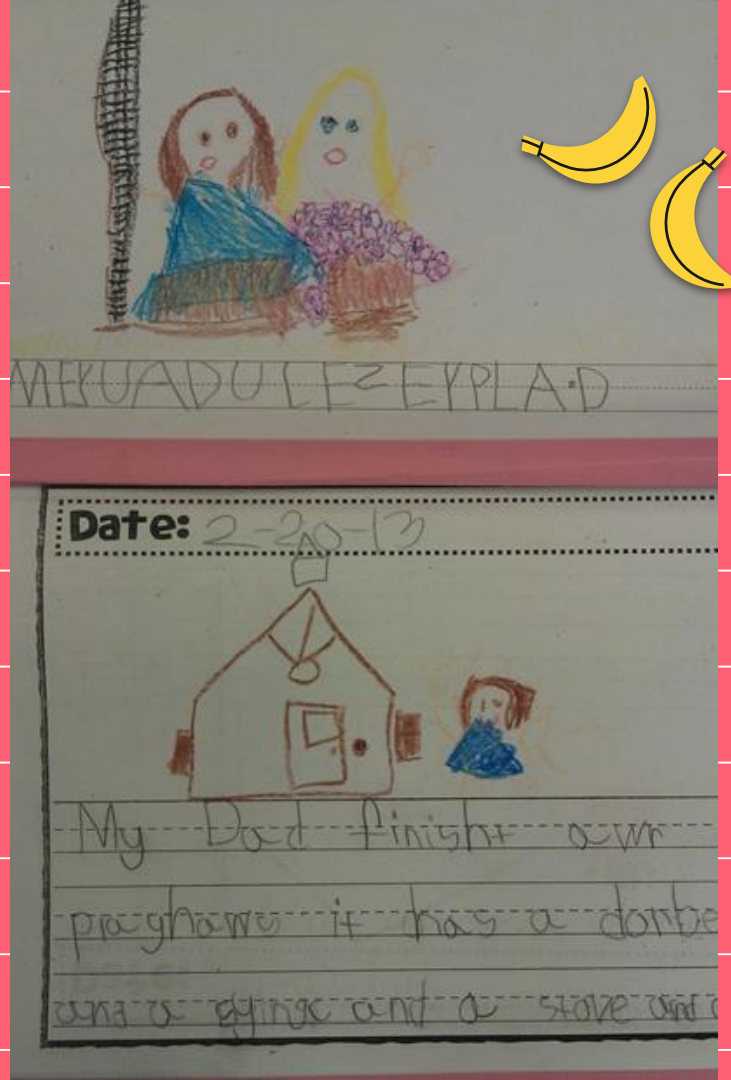 MEKUADULEZEYPLA.D
Date: 2-20-13
My Dad finisht awr
plaghaws it has a dorbe
and a and a stove and